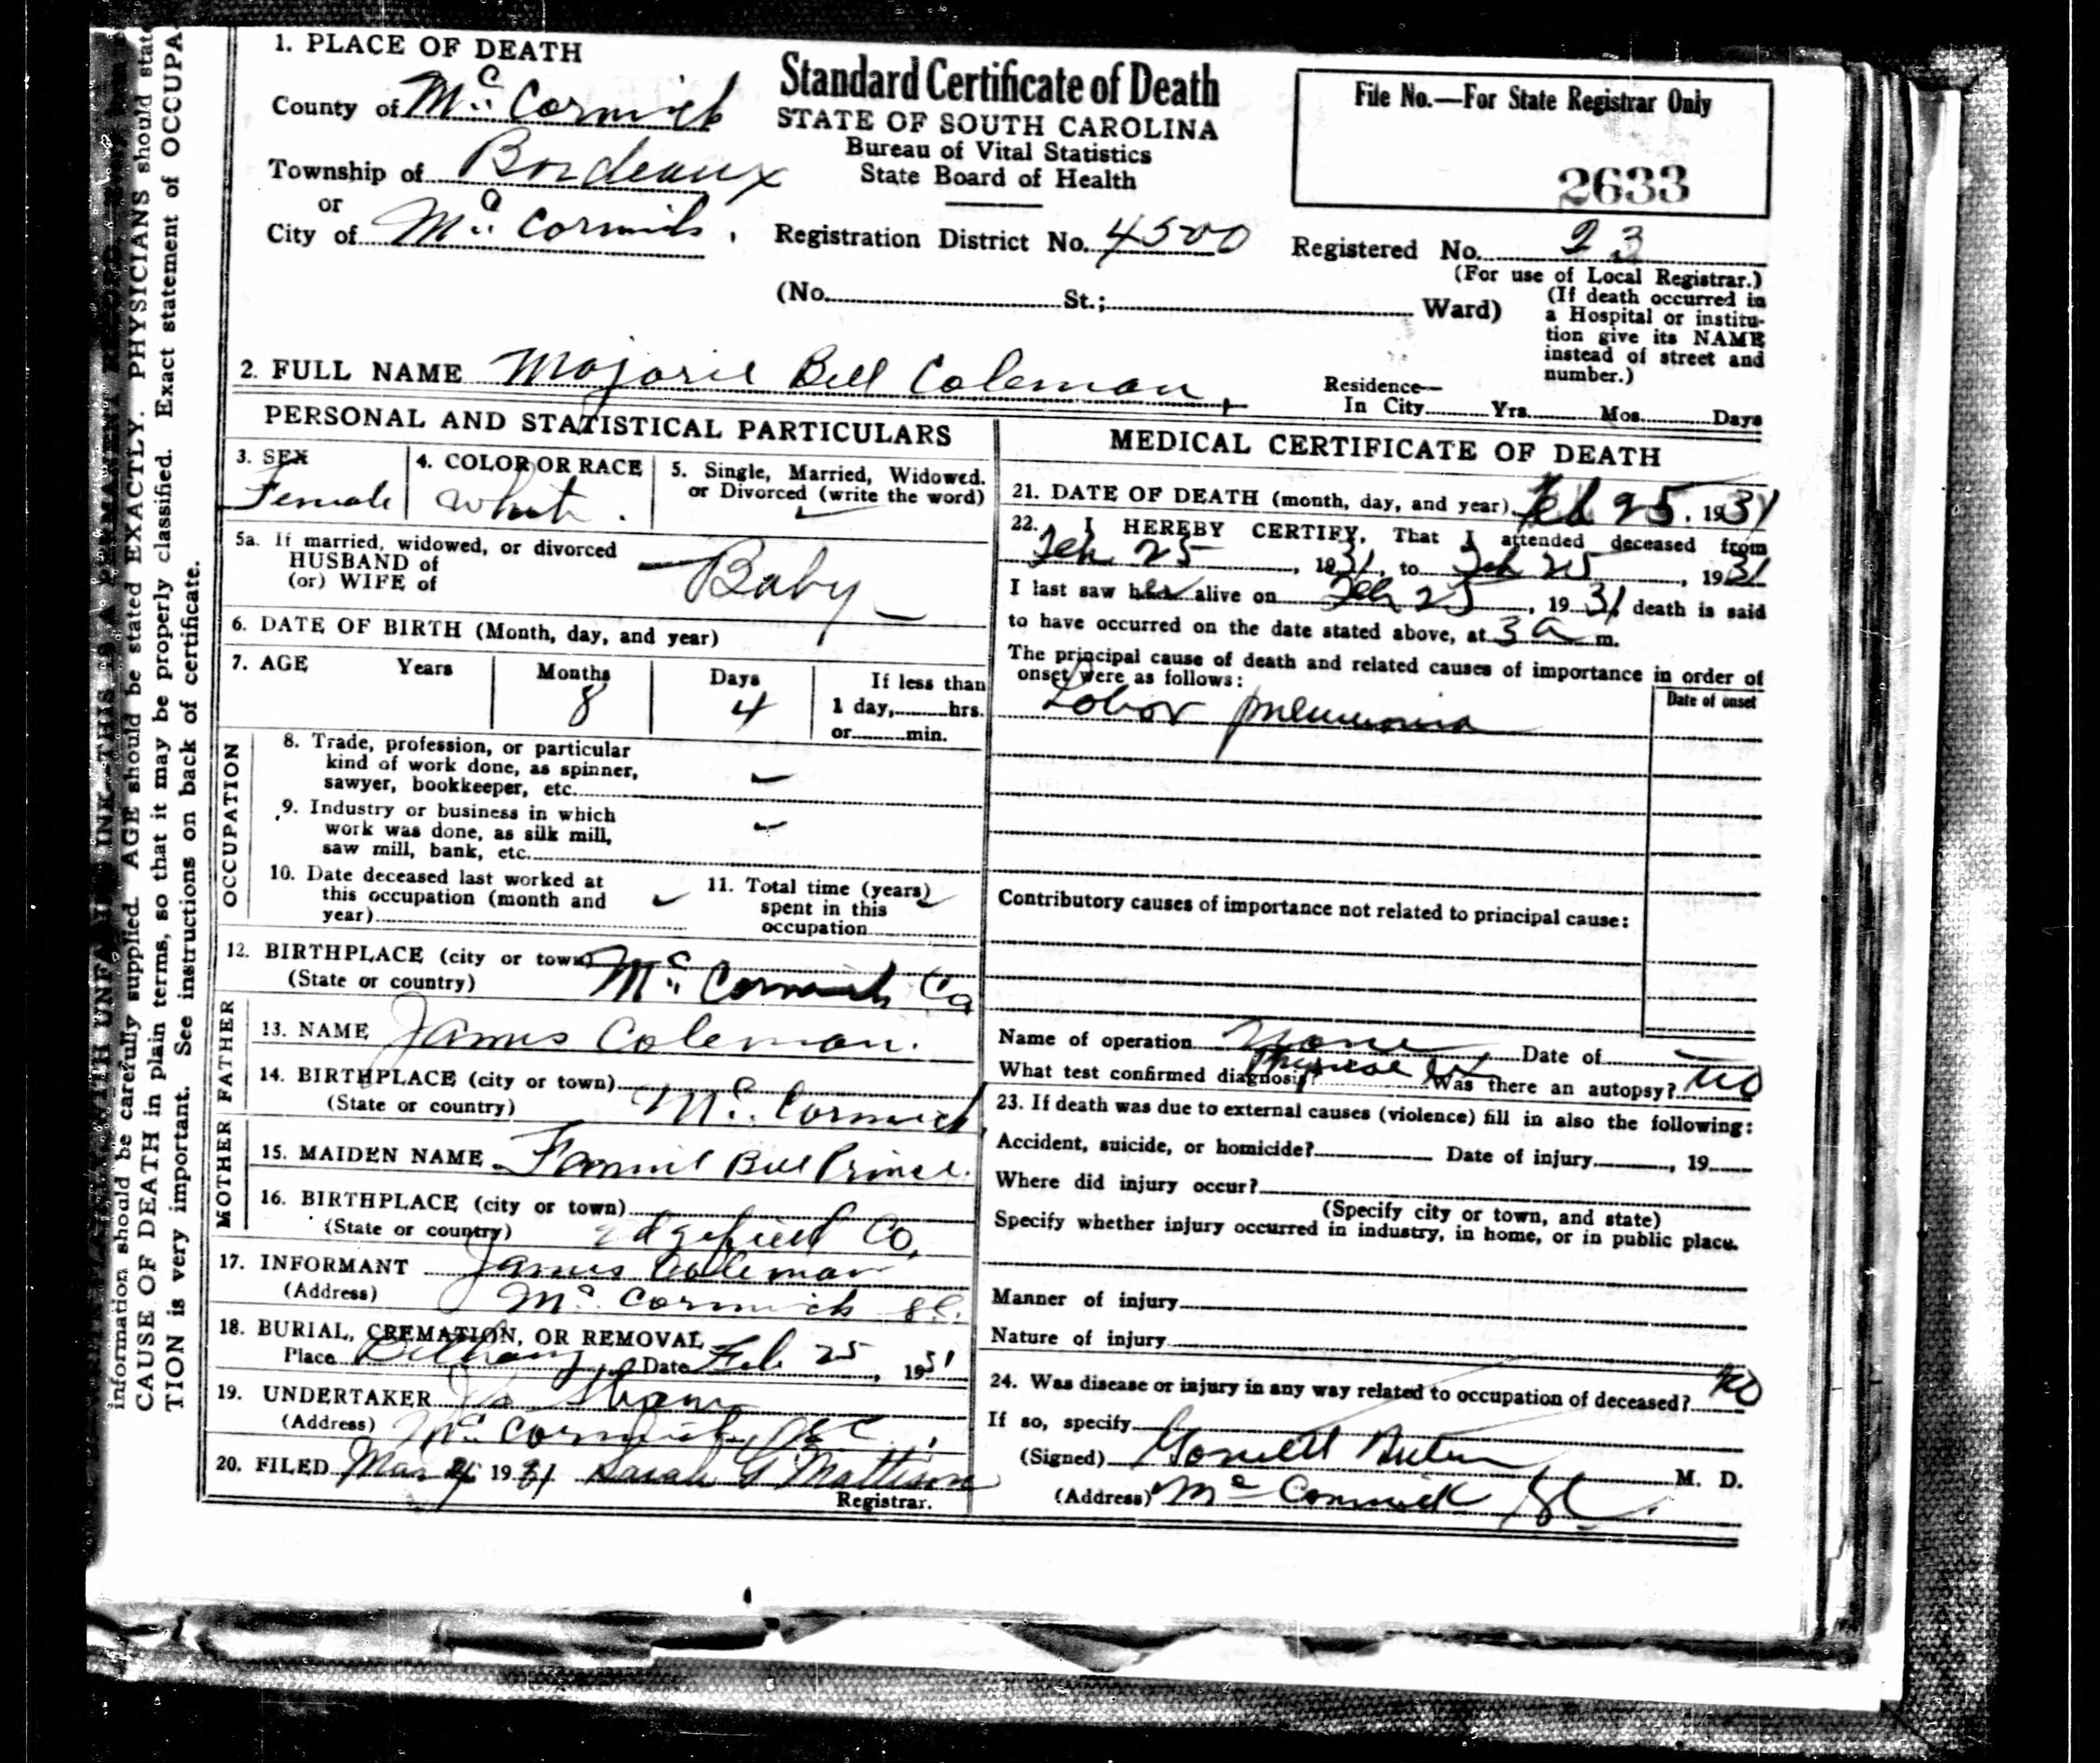 1. PLACE OF DEATH
County of McCormick
Township of Bordeaux
or
City of McCormick.
Standard Certificate of Death
STATE OF SOUTH CAROLINA
Bureau of Vital Statistics
State Board of Health
File No.—For State Registrar Only
2633
Registration District No. 4500
Registered No. 23
(For use of Local Registrar.)
(No. St.; Ward)
(If death occurred in
a Hospital or institu-
tion give its NAME
instead of street and
number.)
2. FULL NAME Marjorie Bell Coleman
Residence—
In City Yrs. Mos. Days
PERSONAL AND STATISTICAL PARTICULARS
3. SEX
Female
4. COLOR OR RACE
White.
5. Single, Married, Widowed.
or Divorced (write the word)
5a. If married, widowed, or divorced
HUSBAND of
(or) WIFE of
Baby
6. DATE OF BIRTH (Month, day, and year)
7. AGE Years Months Days If less than
8 4 1 day, hrs.
or min.
OCCUPATION
8. Trade, profession, or particular
kind of work done, as spinner,
sawyer, bookkeeper, etc.
9. Industry or business in which
work was done, as silk mill,
saw mill, bank, etc.
10. Date deceased last worked at
this occupation (month and
year)
11. Total time (years)
spent in this
occupation
12. BIRTHPLACE (city or town)
(State or country) McCormick Co
FATHER
13. NAME James Coleman.
14. BIRTHPLACE (city or town)
(State or country) McCormick
MOTHER
15. MAIDEN NAME Fannie Bell Prince.
16. BIRTHPLACE (city or town)
(State or country) Edgefield Co.
17. INFORMANT James Coleman
(Address) McCormick SC.
18. BURIAL, CREMATION, OR REMOVAL
Place Bethany Date Feb 25, 1931
19. UNDERTAKER
(Address) McCormick, SC
20. FILED Mar 1931 Sarah G Mattison
Registrar.
MEDICAL CERTIFICATE OF DEATH
21. DATE OF DEATH (month, day, and year). Feb 25, 1931
22. I HEREBY CERTIFY, That I attended deceased from
Feb 25, 1931, to Feb 25, 1931
I last saw her alive on Feb 25, 1931 death is said
to have occurred on the date stated above, at 3 a m.
The principal cause of death and related causes of importance in order of
onset were as follows:
Date of onset
Lobar pneumonia
Contributory causes of importance not related to principal cause:
Name of operation None Date of
What test confirmed diagnosis? Was there an autopsy? No
23. If death was due to external causes (violence) fill in also the following:
Accident, suicide, or homicide? Date of injury, 19
Where did injury occur?
(Specify city or town, and state)
Specify whether injury occurred in industry, in home, or in public place.
Manner of injury
Nature of injury
24. Was disease or injury in any way related to occupation of deceased? No
If so, specify
(Signed) M. D.
(Address) McCormick SC.
information should be carefully supplied. AGE should be stated EXACTLY. PHYSICIANS should state
CAUSE OF DEATH in plain terms, so that it may be properly classified. Exact statement of OCCUPA
TION is very important. See instructions on back of certificate.